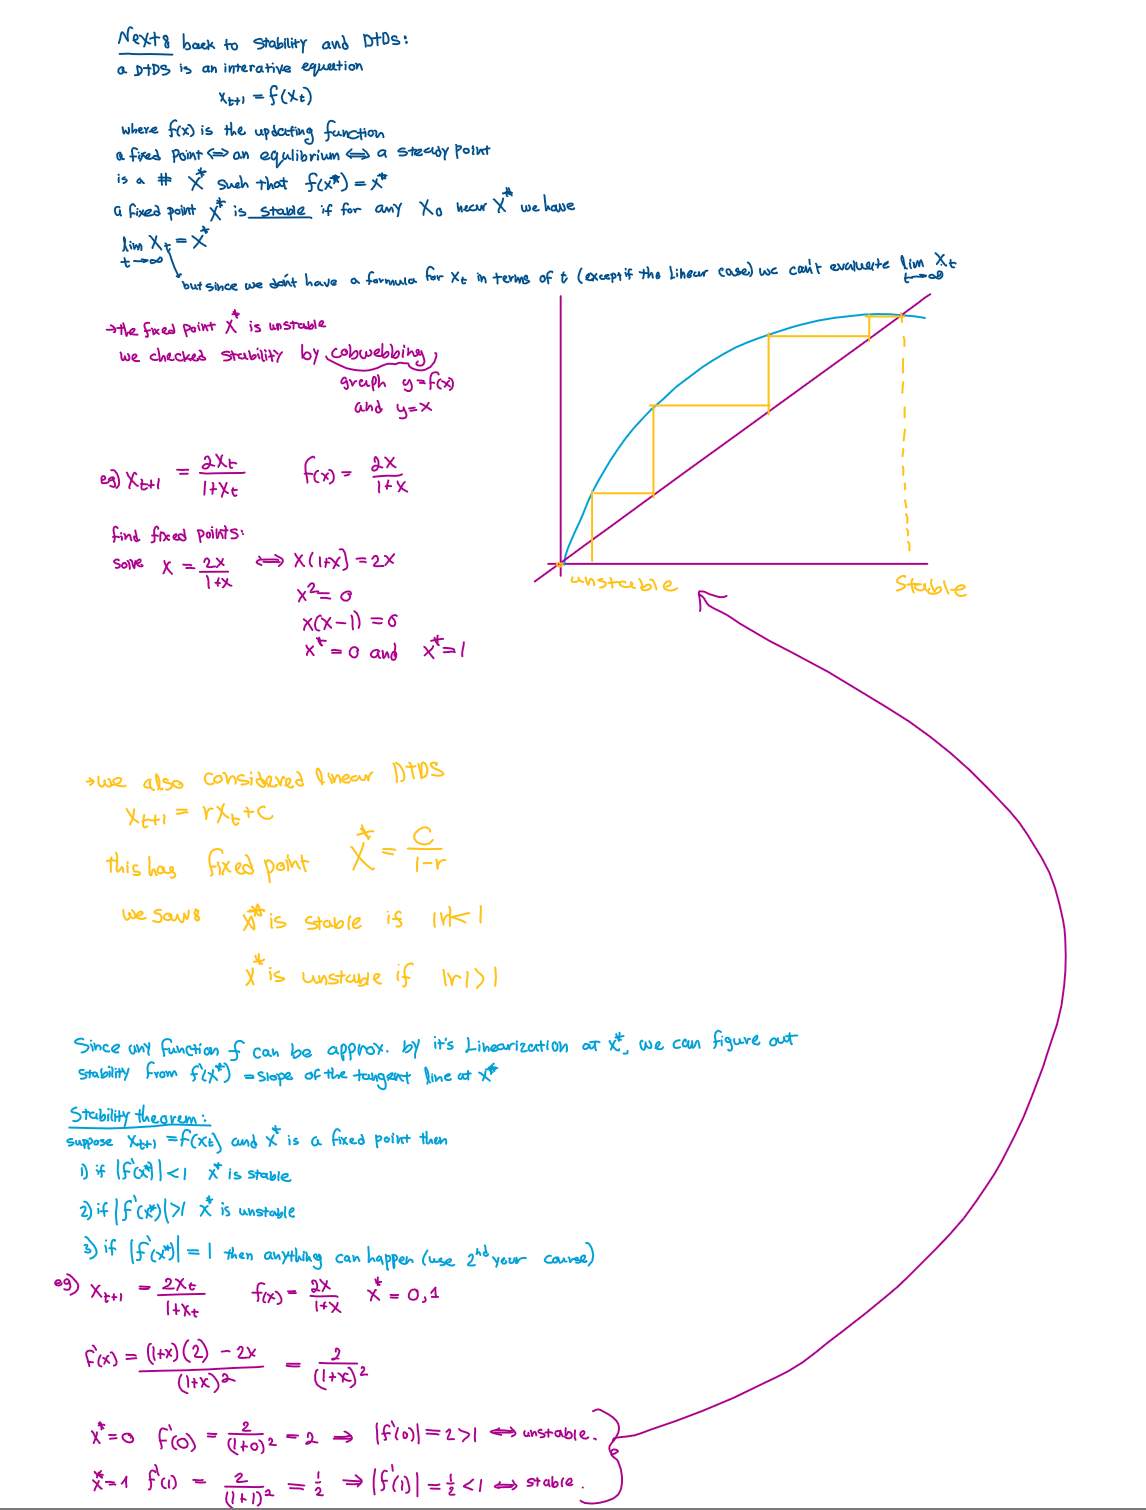 Next: back to stability and DTDS:
a DTDS is an interative equation
x_{t+1} = f(x_t)
where f(x) is the updating function
a fixed point ⟺ an equlibrium ⟺ a steady point
is a # x* such that f(x*) = x*
a fixed point x* is stable if for any x_0 near x* we have
lim_{t→∞} x_t = x*
but since we don't have a formula for x_t in terms of t (except if the linear case) we can't evaluate lim_{t→∞} x_t
→ the fixed point x* is unstable
we checked stability by cobwebbing
graph y = f(x)
and y = x
eg) x_{t+1} = 2x_t / 1+x_t f(x) = 2x / 1+x
find fixed points:
solve x = 2x / 1+x ⟺ x(1+x) = 2x
x² = 0
x(x-1) = 0
x* = 0 and x* = 1
unstable stable
→ we also considered linear DTDS
x_{t+1} = rx_t + c
this has fixed point x* = c / 1-r
we saw: x* is stable if |r| < 1
x* is unstable if |r| > 1
Since any function f can be approx. by it's Linearization at x*, we can figure out
stability from f'(x*) = slope of the tangent line at x*
Stability theorem:
suppose x_{t+1} = f(x_t) and x* is a fixed point then
1) if |f'(x*)| < 1 x* is stable
2) if |f'(x*)| > 1 x* is unstable
3) if |f'(x*)| = 1 then anything can happen (use 2nd year course)
eg) x_{t+1} = 2x_t / 1+x_t f(x) = 2x / 1+x x* = 0, 1
f'(x) = (1+x)(2) - 2x / (1+x)² = 2 / (1+x)²
x* = 0 f'(0) = 2 / (1+0)² = 2 ⇒ |f'(0)| = 2 > 1 ⟺ unstable.
x* = 1 f'(1) = 2 / (1+1)² = 1/2 ⇒ |f'(1)| = 1/2 < 1 ⟺ stable.